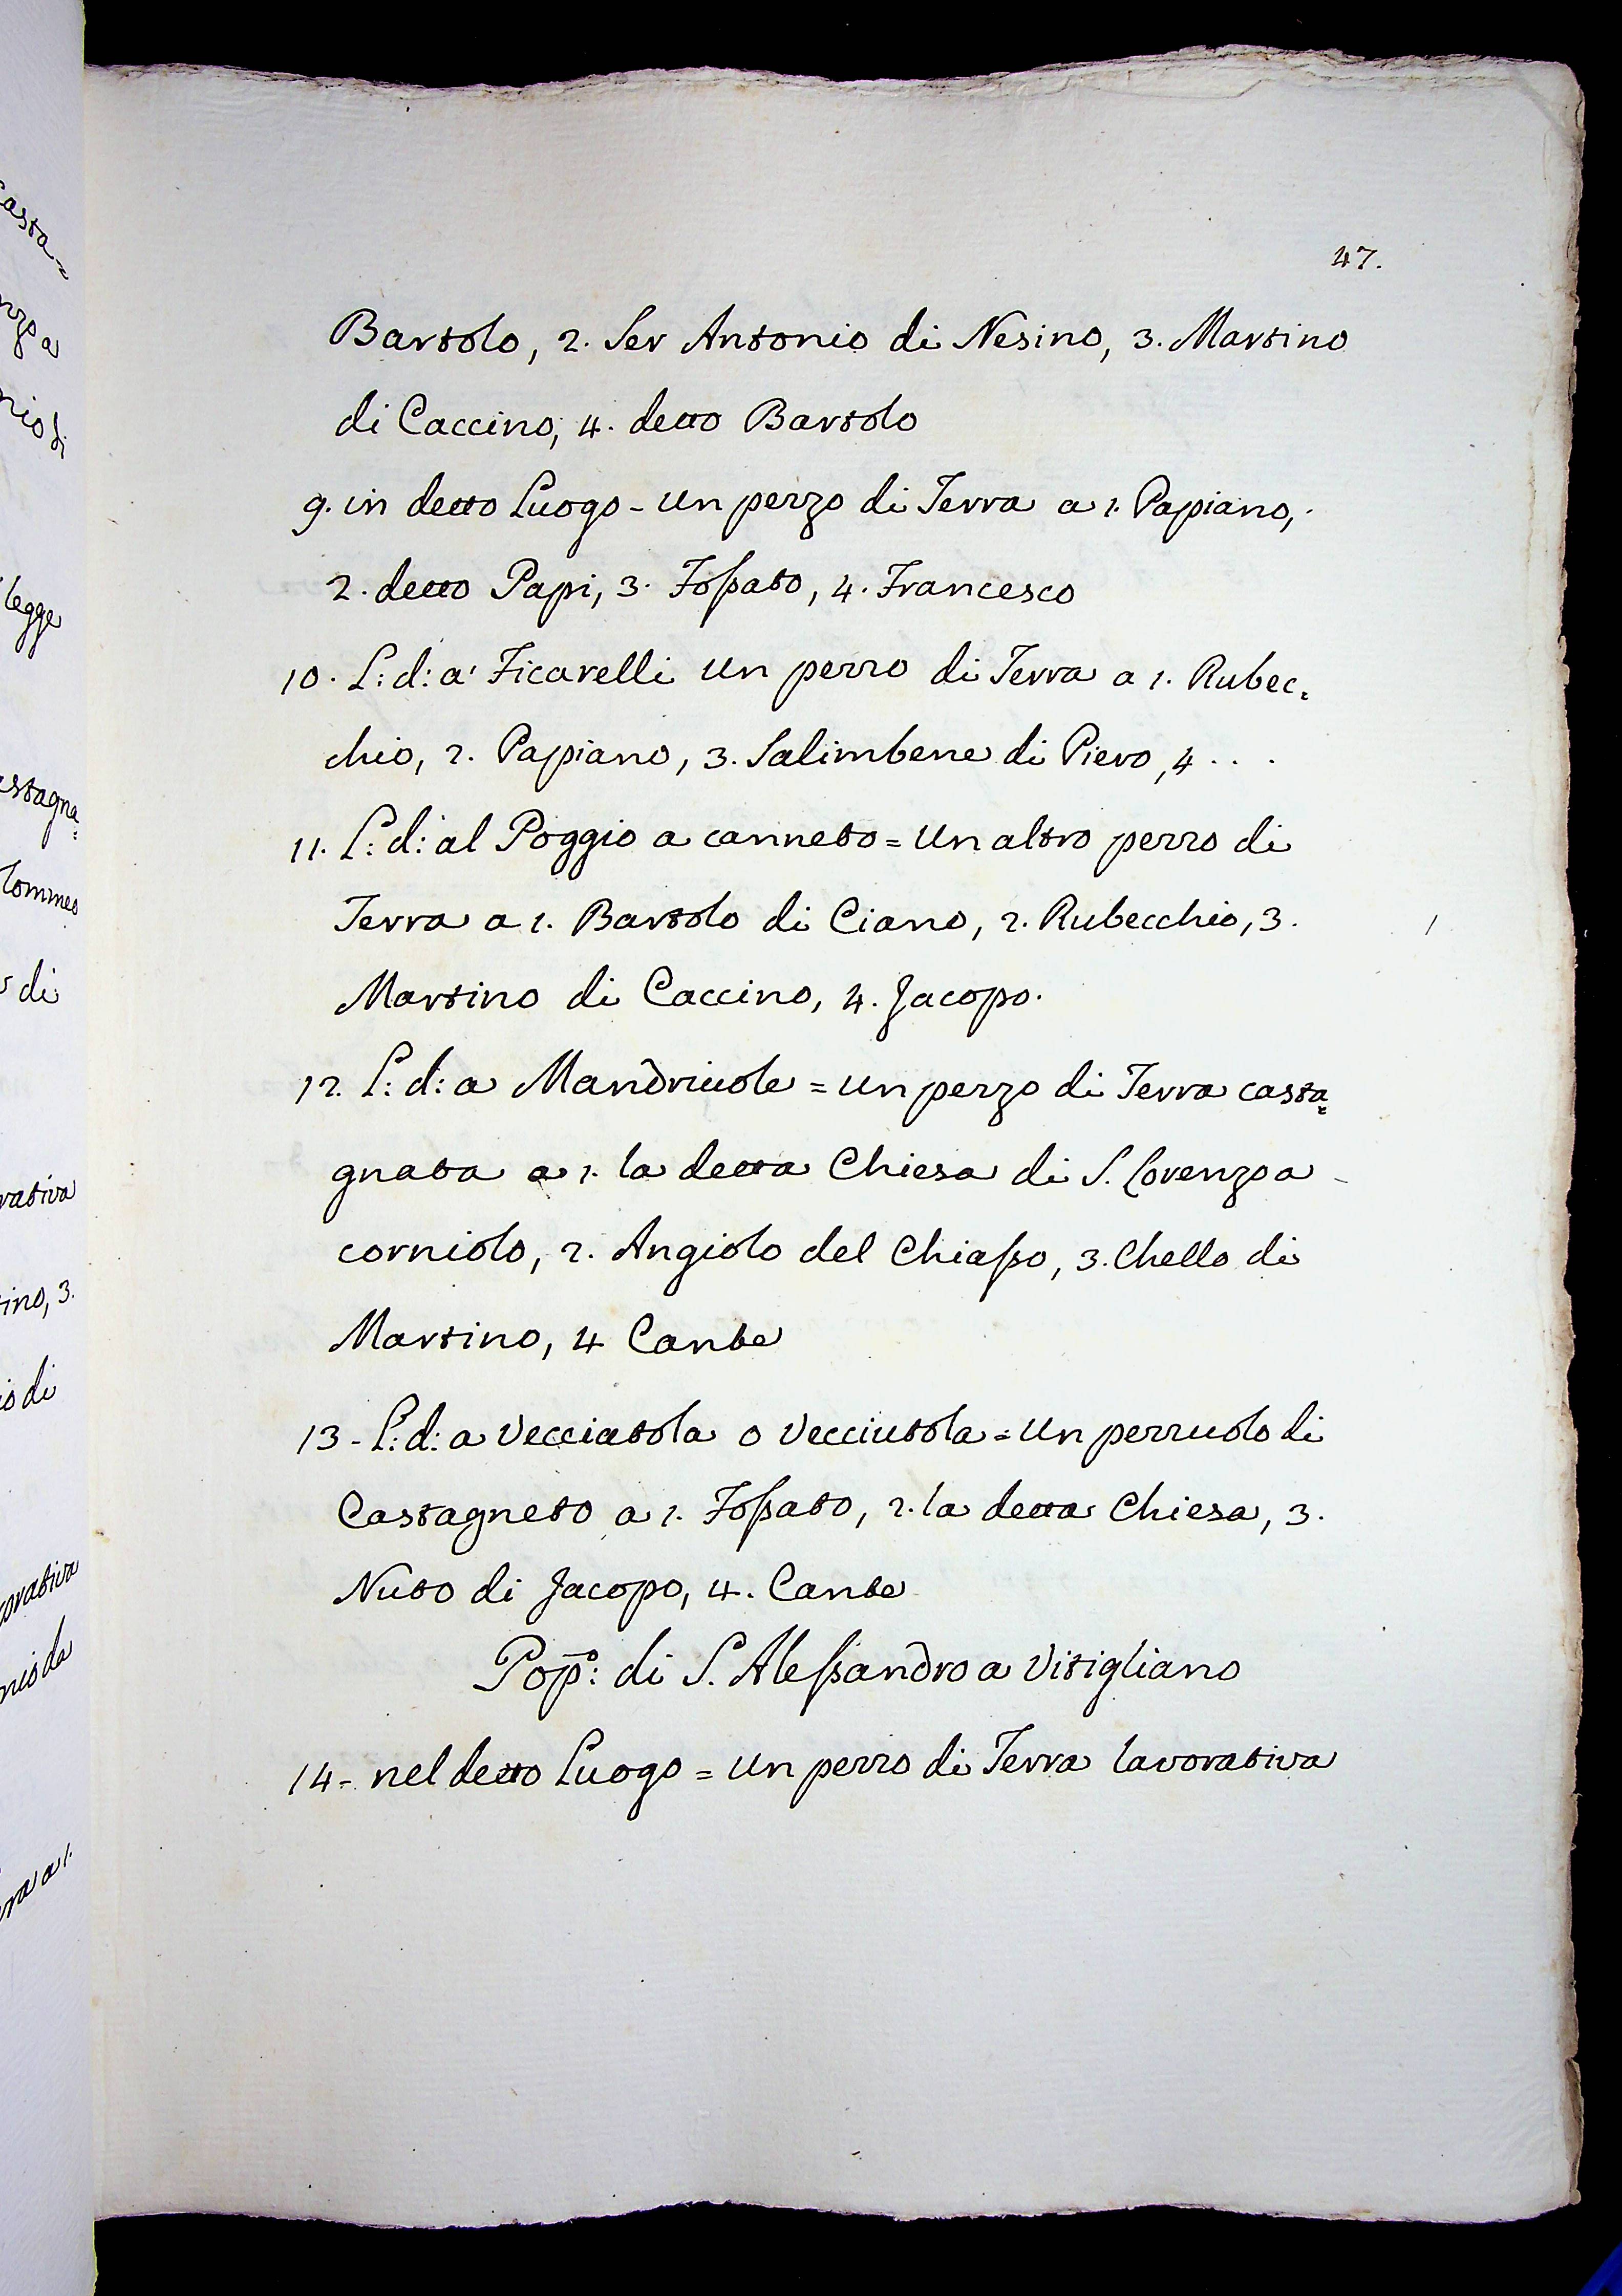 47.
Bartolo, 2. Ser Antonio di Nesino, 3. Martino
di Caccino, 4. detto Bartolo
9. in detto Luogo - un pezzo di Terra a 1. Papiano,
2. detto Papi, 3. Fossato, 4. Francesco
10. L: d: a' Ficarelli un pezzo di Terra a 1. Rubec=
chio, 2. Papiano, 3. Salimbene di Piero, 4 . . .
11. L: d: al Poggio a canneto = un altro pezzo di
Terra a 1. Bartolo di Ciano, 2. Rubecchio, 3.
Martino di Caccino, 4. Jacopo.
12. L: d: a Mandriuole = un pezzo di Terra casta=
gnata a 1. la detta Chiesa di S. Lorenzo a
corniolo, 2. Angiolo del Chiasso, 3. Chello di
Martino, 4 Cante
13 - L: d: a Vecciatola o Vecciutola = un pezzuolo di
Castagneto a 1. Fossato, 2. la detta Chiesa, 3.
Nuto di Jacopo, 4. Cante
Popº: di S. Alessandro a Vitigliano
14 - nel detto Luogo = un pezzo di Terra lavorativa